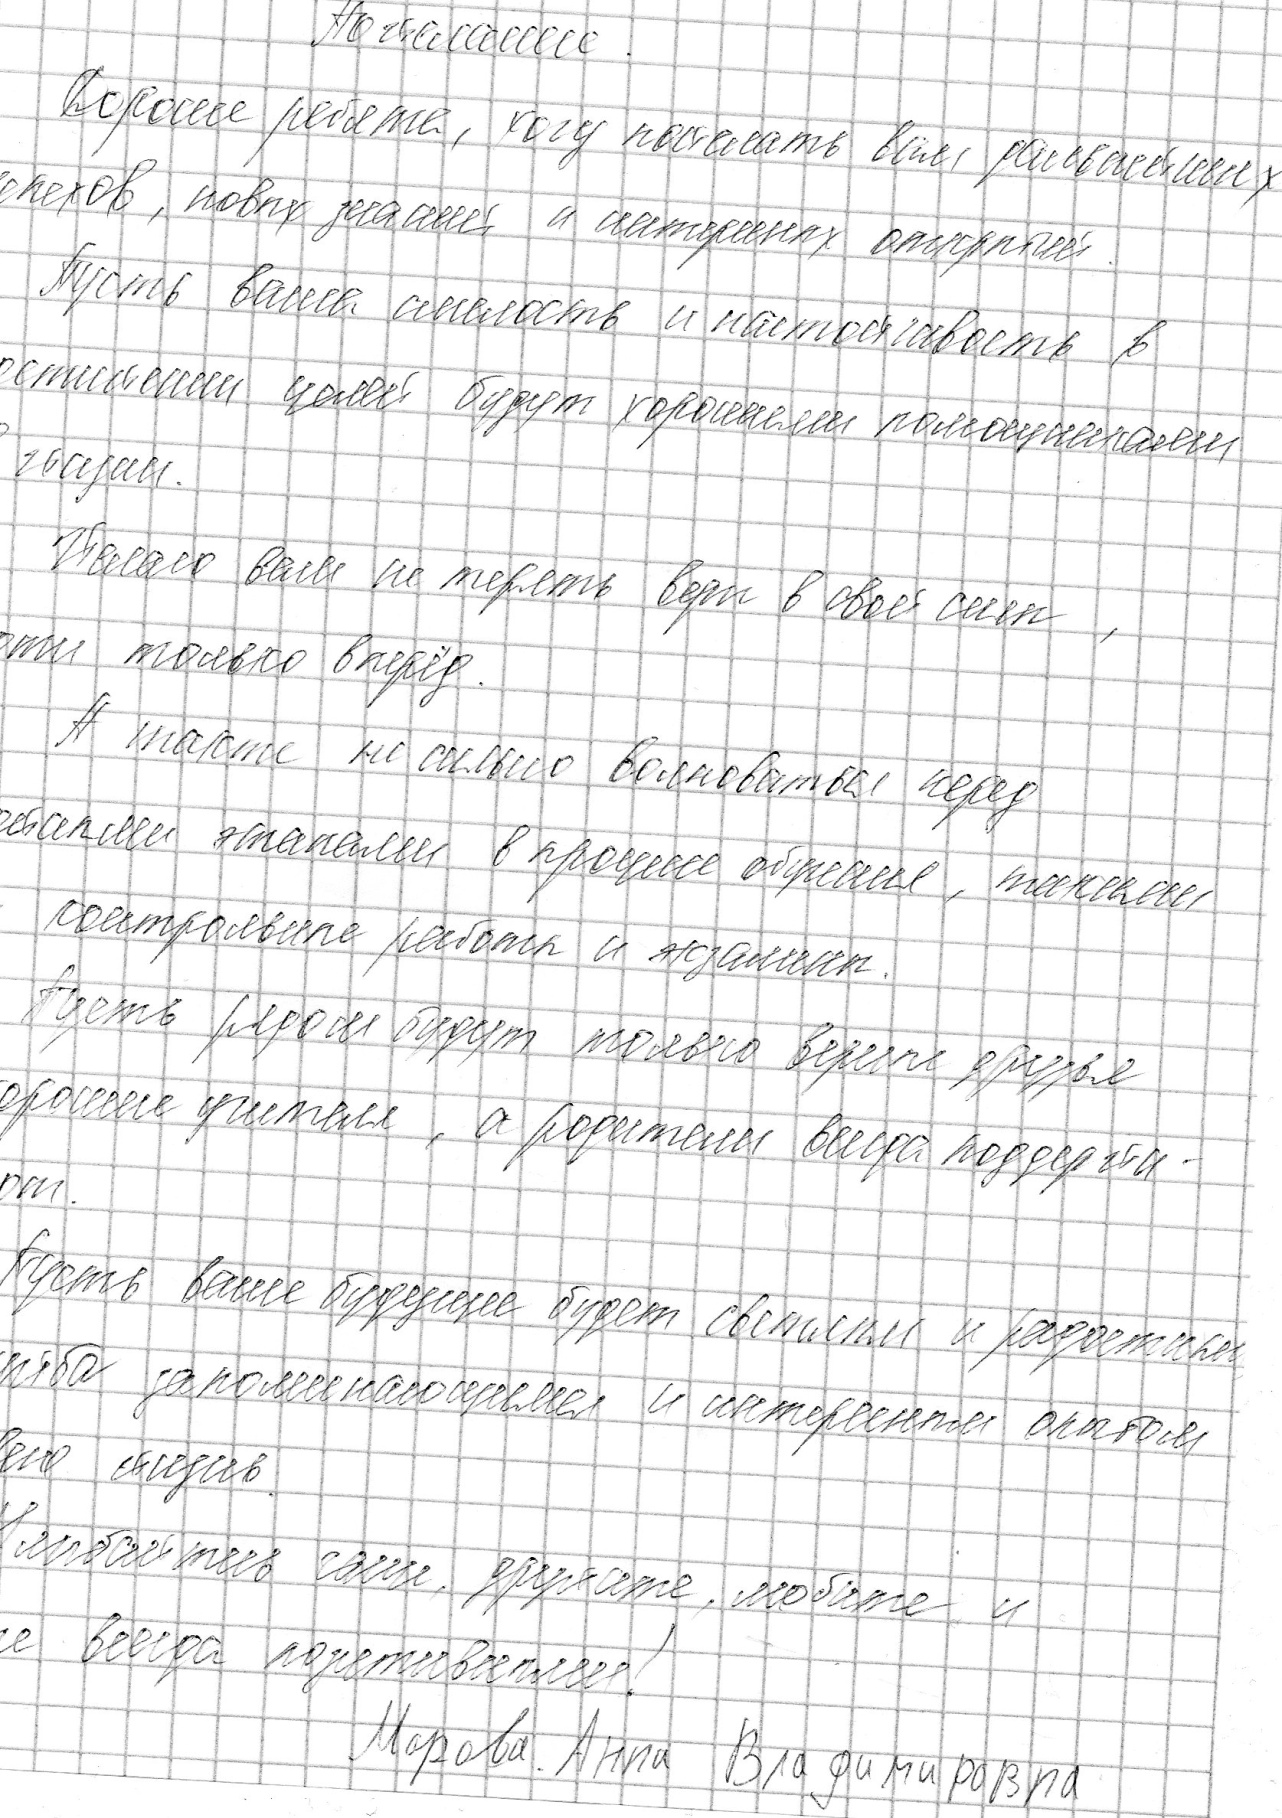 Пожелание.
Дорогие ребята, хочу пожелать вам дальнейших
спехов, новых знаний и интересных открытий.
Пусть ваша смелость и настойчивость в
остижении целей будут хорошими помощниками
в жизни.
Желаю вам не терять веры в свои силы,
только вперёд.
А также не сильно волноваться перед
этапами в процессе обучения, такими
контрольные работы и экзамены.
Пусть рядом будут только верные друзья
орошие учителя, а родители всегда поддержи-
ют.
Пусть ваше будущее будет светлым и радостным
запоминающимся и интересным опытом
жизнь.
Улыбайтесь чаще, дружите, любите и
всегда позитивными!
Морова Анна Владимировна